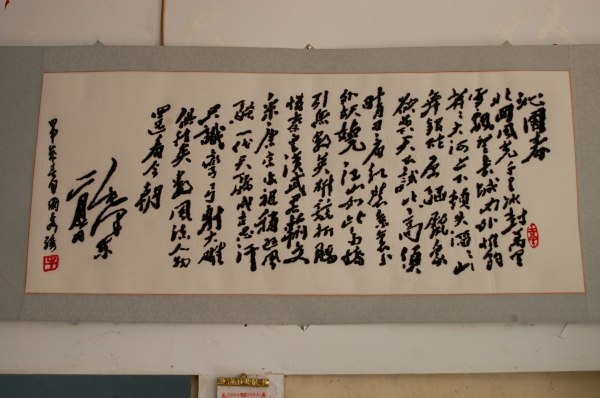 沁園春
北國風光千里冰封萬里
雪飄望長城內外惟餘
莽莽大河上下頓失滔滔山
舞銀蛇原驅蠟象
欲與天公試比高須
晴日看紅裝素裹分
外妖嬈江山如此多嬌
引無數英雄競折腰
惜秦皇漢武略輸文
采唐宗宋祖稍遜風
騷一代天驕成吉思汗
只識彎弓射大雕
俱往矣數風流人物
還看今朝
毛澤東